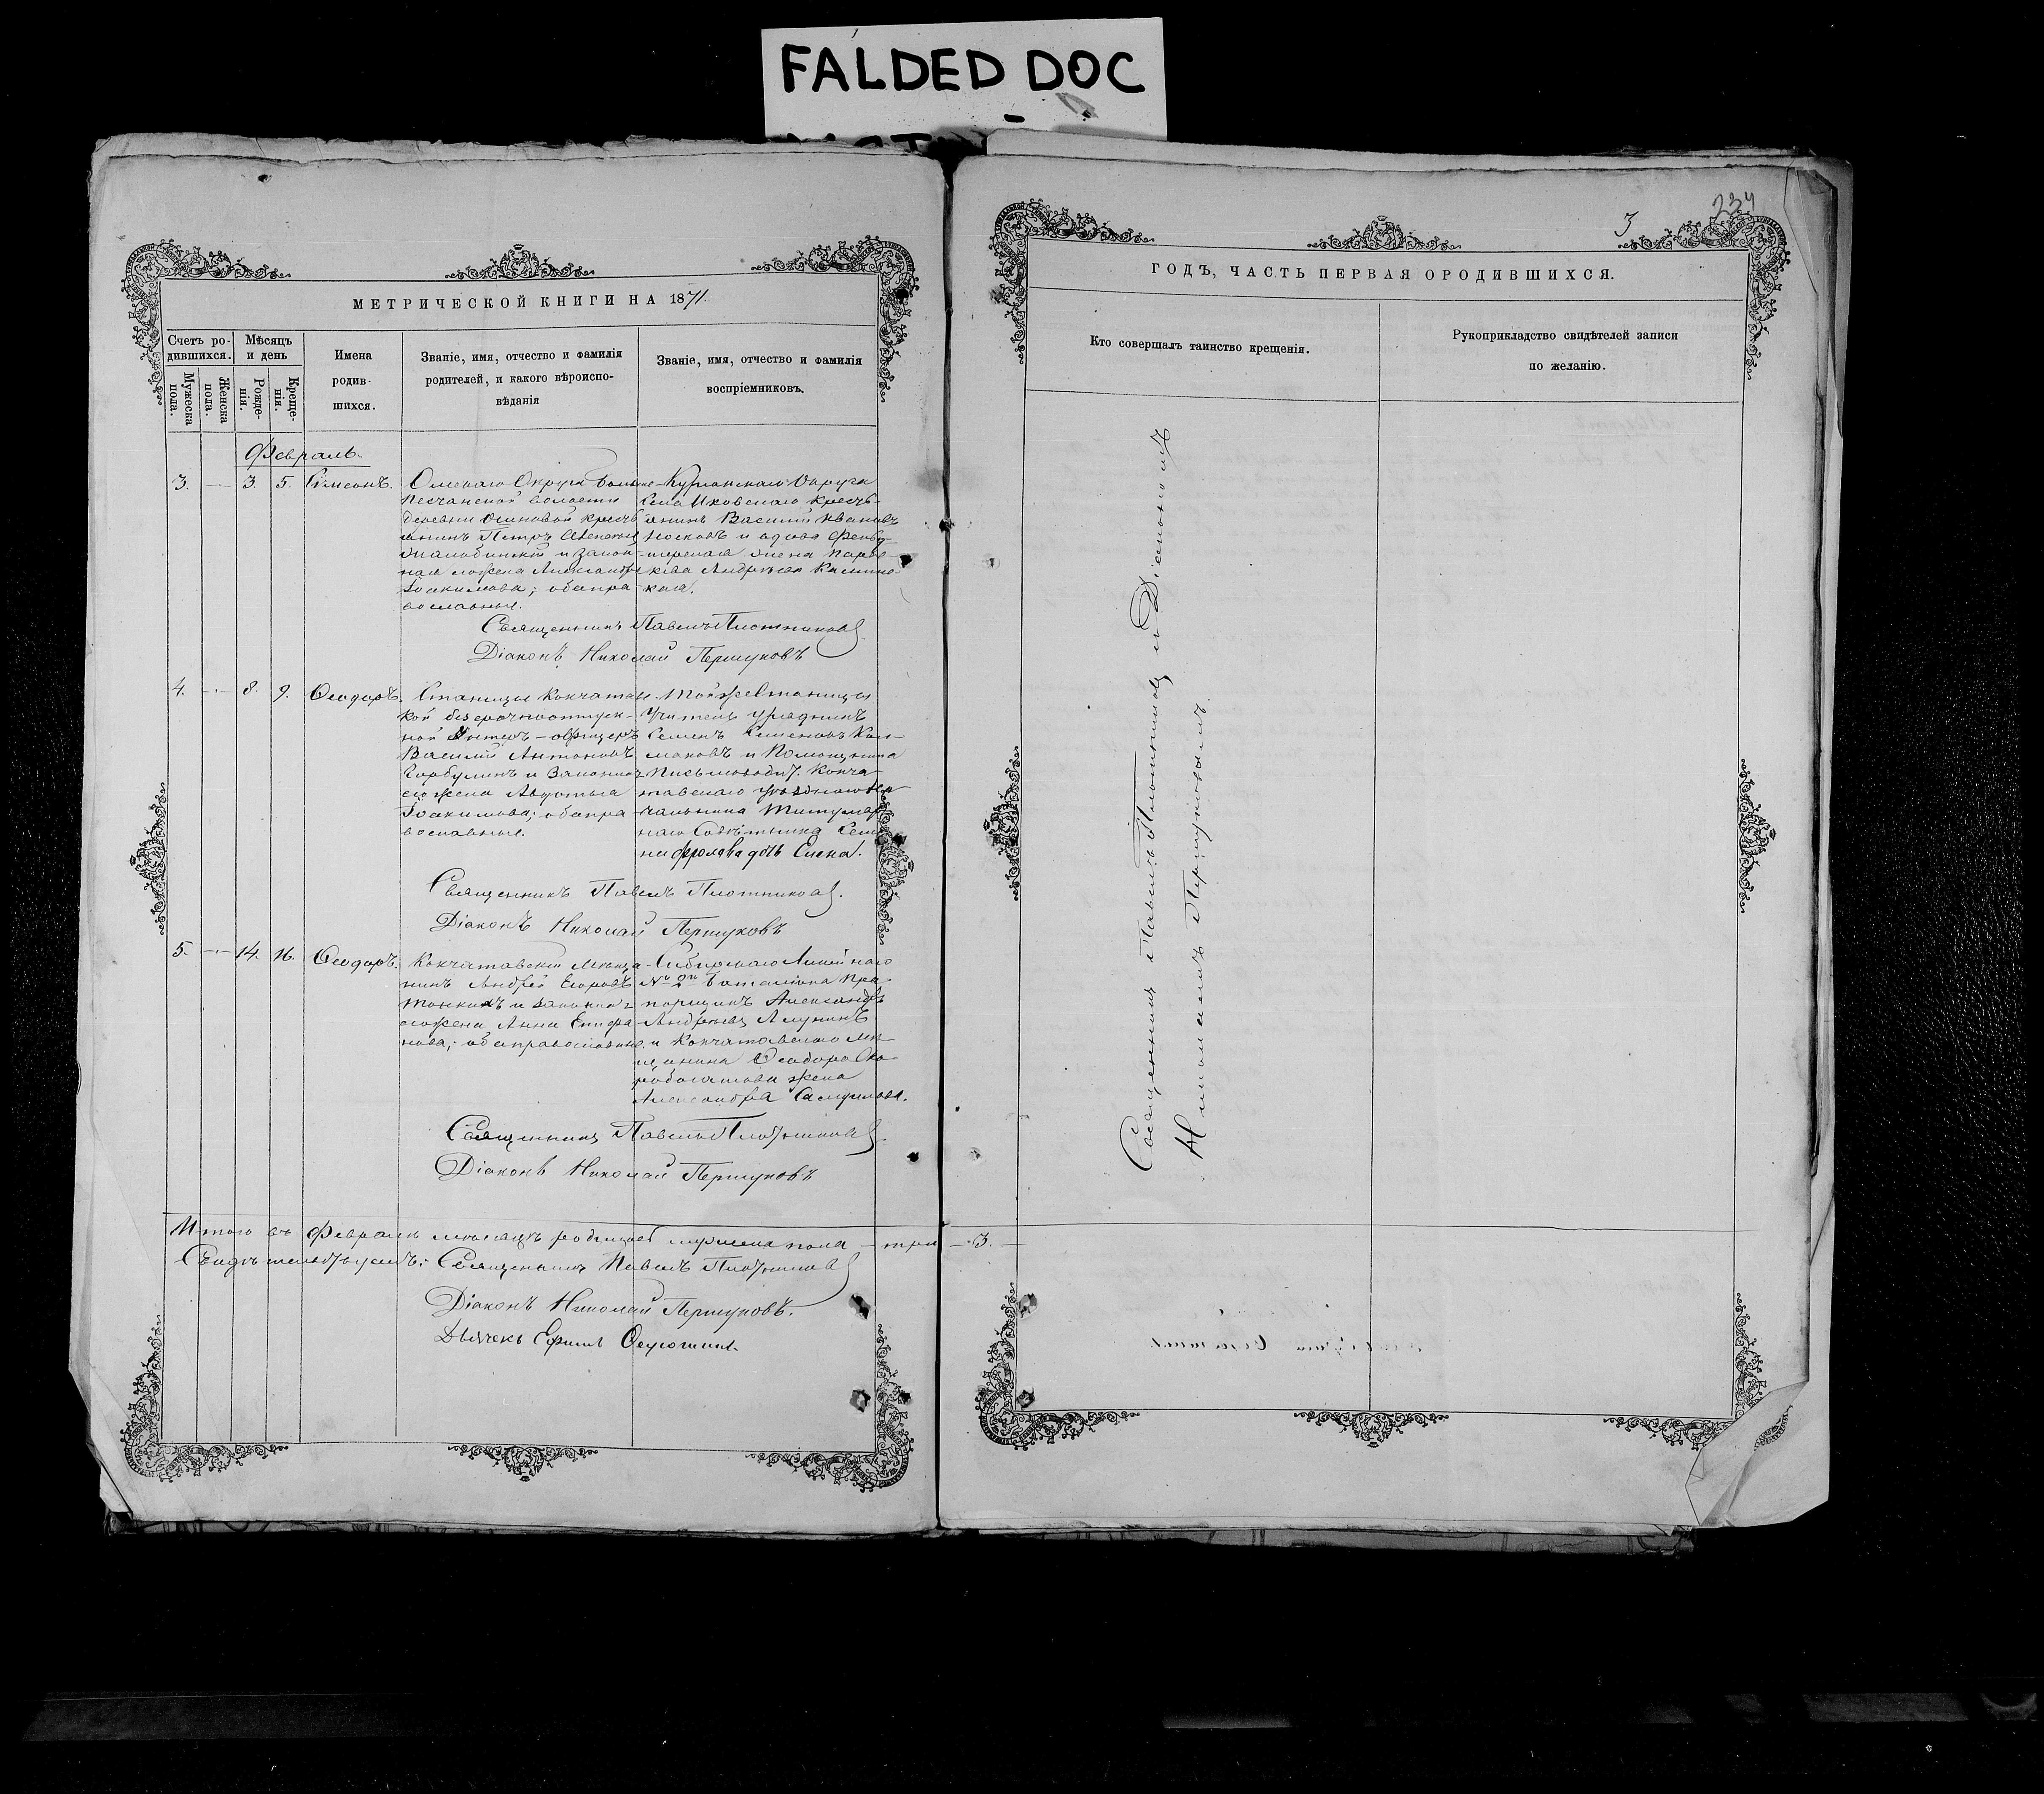 FALDED DOC
МЕТРИЧЕСКОЙ КНИГИ НА 1871.
Счетъ ро-
дившихся.
Мѣсяцъ
и день
Мужеска
пола.
Женска
пола.
Рожде-
нія.
Креще-
нія.
Имена
родив-
шихся.
Званіе, имя, отчество и фамилія
родителей, и какого вѣроиспо-
вѣданія
Званіе, имя, отчество и фамилія
воспріемниковъ.
Февраль.
3. — 3. 5. Симеонъ.
Омскаго Округа Больше-
песчанской волости
деревни Осиновой кресть
янинъ Петръ
и закон-
ная его жена Александра
Іоакимова; обапра-
вославные.
Курганскаго Округа
Села Иковскаго кресть-
янинъ Василій Ивановъ
Носковъ и вдова Фельд-
шерская жена
Андреева
Священникъ Павелъ Плотниковъ
Діаконъ Николай Першуковъ
4. — 8. 9. Ѳеодоръ.
Станицы Кокчетавс-
кой безсрочноотпуск-
ной Унтеръ-офицеръ
Василій Антоновъ
Горбунинъ и Законная
его жена Авдотья
Іоакимова; обапра-
вославные.
Той же станицы
Учитель урядникъ
Семенъ Семеновъ Кол-
маковъ и Помощника
Письмоводит. Кокче-
тавскаго уѣзднаго на-
чальника Титуляр-
наго Совѣтника Семе-
на Фролова дочь Елена.
Священникъ Павелъ Плотниковъ.
Діаконъ Николай Першуковъ
5. — 14. 16. Ѳеодоръ.
Кокчетавскій мѣща-
нинъ Андрей Егоровъ
Тонкихъ и законная
его жена Анна Епифа-
нова; обаправославные.
Сибирскаго Линейнаго
№ 2го Баталіона Пра-
порщикъ Александръ
Андреевъ
и Кокчетавскаго мѣ-
щанина Ѳеодора Ско-
робогатова жена
Александра Самуилова.
Священникъ Павелъ Плотниковъ.
Діаконъ Николай Першуковъ
Итого въ Февралѣ мѣсяцѣ родившихся мужеска пола — три — 3. —
Свидѣтельствуемъ: Священникъ Павелъ Плотниковъ
Діаконъ Николай Першуковъ.
Дьячекъ Ефимъ
3
234
ГОДЪ, ЧАСТЬ ПЕРВАЯ О РОДИВШИХСЯ.
Кто совершалъ таинство крещенія.
Рукоприкладство свидѣтелей записи
по желанію.
Священникъ Павелъ Плотниковъ съ Діакономъ
Николаемъ Першуковымъ.